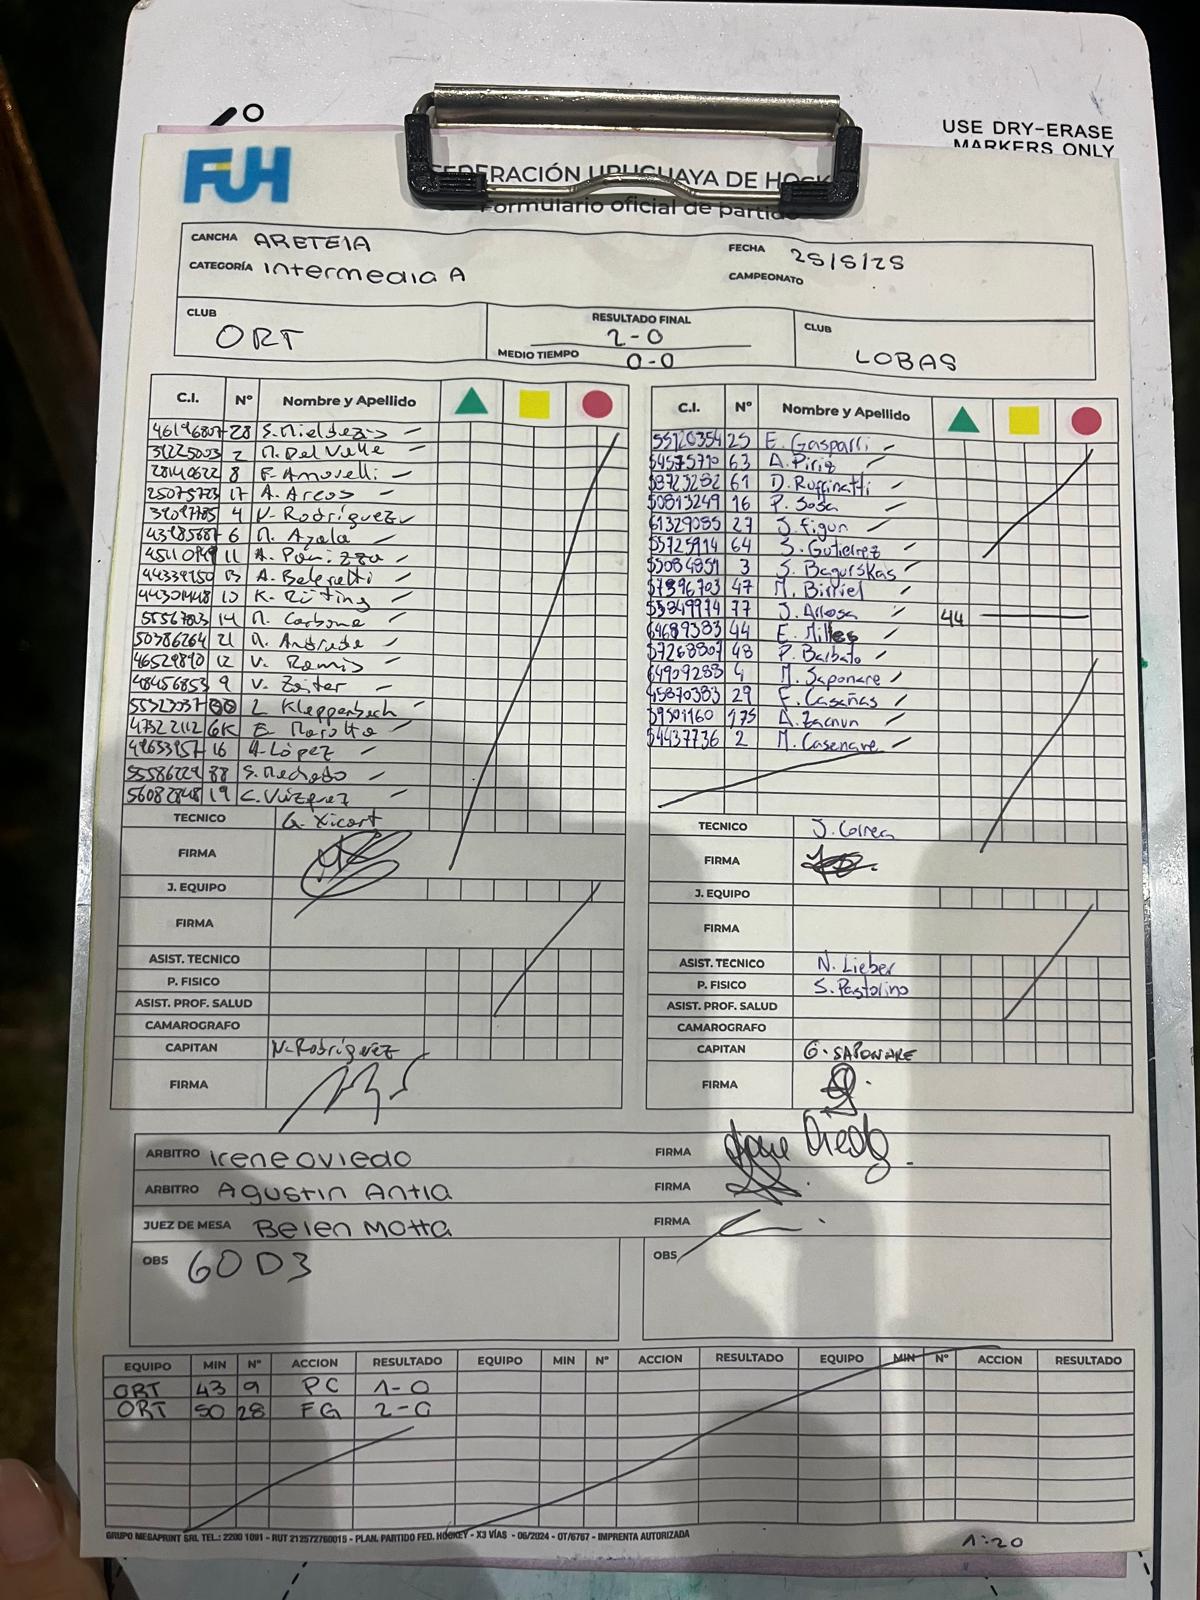 USE DRY-ERASE
MARKERS ONLY
FUH
FEDERACIÓN URUGUAYA DE HOCK
Formulario oficial de partido
CANCHA ARETEIA
FECHA 25/5/25
CATEGORÍA Intermedia A
CAMPEONATO
CLUB ORT
RESULTADO FINAL 2-0
MEDIO TIEMPO 0-0
CLUB LOBAS
C.I. Nº Nombre y Apellido
28
2 M. Del Valle
8
17 A. Arcos
4 V. Rodríguez
6 M. Ayala
11
13
10 K. Rüting
14 M. Carbone
50386264 21 M. Andrade
46529870 12 V. Ramis
48456853 9 V. Zeiter
L. Kleppenbach
E. Marotta
16 A. López
88 S. Machado
19 C. Vázquez
TECNICO G. Xicart
FIRMA
J. EQUIPO
FIRMA
ASIST. TECNICO
P. FISICO
ASIST. PROF. SALUD
CAMAROGRAFO
CAPITAN V. Rodríguez
FIRMA
C.I. Nº Nombre y Apellido
55120354 25 E. Gasparri
54575710 63 A. Piriz
61 D. Ruffinatti
50813249 16 P. Sosa
61329085 27 J. Figun
55725914 64 S. Gutierrez
55084851 3 S. Bagurskas
57396703 47 M. Birriel
55849974 77 J. Allosa 44
54689383 44 E. Milles
57268807 48 P. Barbato
54909288 4 M. Saponare
45870383 29 F. Casañas
59501160 175 A. Zacnun
54437736 2 M. Casenave
TECNICO J. Correa
FIRMA
J. EQUIPO
FIRMA
ASIST. TECNICO N. Lieber
P. FISICO S. Pastorino
ASIST. PROF. SALUD
CAMAROGRAFO
CAPITAN G. SAPONARE
FIRMA
ARBITRO Irene Oviedo FIRMA
ARBITRO Agustin Antia FIRMA
JUEZ DE MESA Belen Motta FIRMA
OBS 60D3
OBS
EQUIPO MIN Nº ACCION RESULTADO EQUIPO MIN Nº ACCION RESULTADO EQUIPO MIN Nº ACCION RESULTADO
ORT 43 9 PC 1-0
ORT 50 28 FG 2-0
GRUPO MEGAPRINT SRL TEL.: 2200 1091 - RUT 212572760015 - PLAN. PARTIDO FED. HOCKEY - X3 VÍAS - 06/2024 - OT/6767 - IMPRENTA AUTORIZADA
1:20